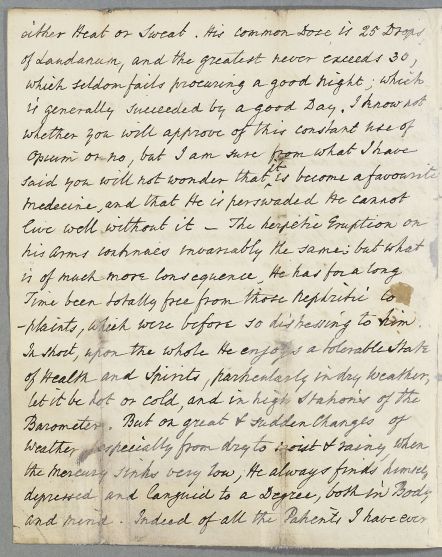 either Heat or Sweat. His common Dose is 25 Drops
of Laudanum, and the greatest never exceeds 30,
which seldom fails procuring a good Night; which
is generally succeeded by a good Day. I know not
whether you will approve of this constant use of
Opium or no, but I am sure from what I have
said you will not wonder that it is become a favourite
Medecine, and that He is perswaded He cannot
live well without it — The herpetic Eruption on
his Arms continues invariably the same: but what
is of much more Consequence, He has for a long
Time been totally free from those Nephritic Co
-plaints, which were before so distressing to him.
In short, upon the whole He enjoys a tolerable State
of Health and Spirits, particularly in dry Weather,
let it be hot or cold, and in high Stations of the
Barometer. But on great & sudden Changes of
Weather especially from dry to moist & rainy, when
the Mercury sinks very low, He always finds himself
depressed and languid to a Degree, both in Body
and mind. Indeed of all the Patients I have ever